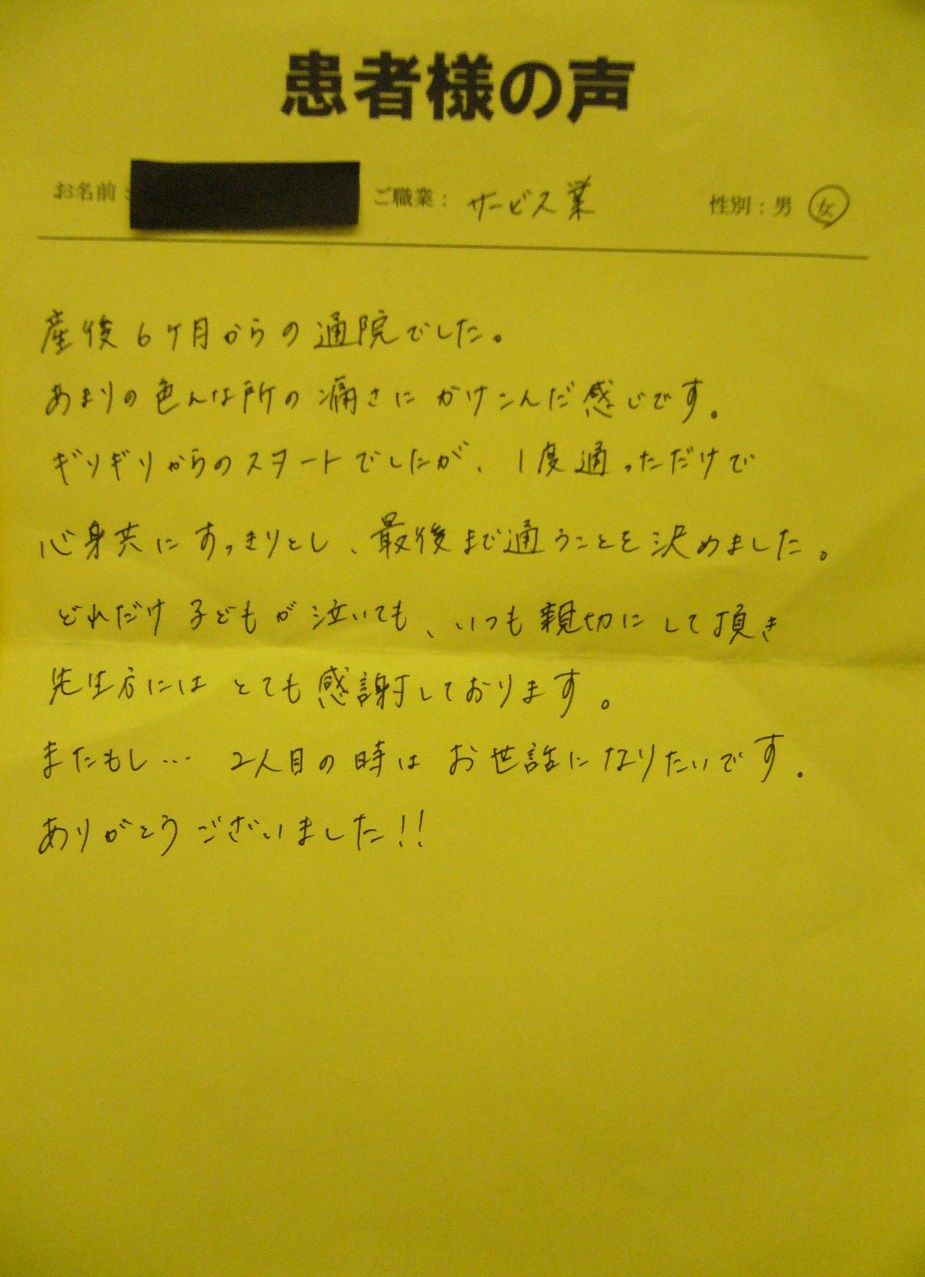 患者様の声
お名前： ご職業： サービス業 性別：男 女
産後6ヶ月からの通院でした。
あまりの色んな所の痛さにかけこんだ感じです。
ギリギリからのスタートでしたが、1度通っただけで
心身共にすっきりとし、最後まで通うことを決めました。
どれだけ子どもが泣いても、いつも親切にして頂き
先生方にはとても感謝しております。
またもし… 2人目の時はお世話になりたいです.
ありがとうございました!!